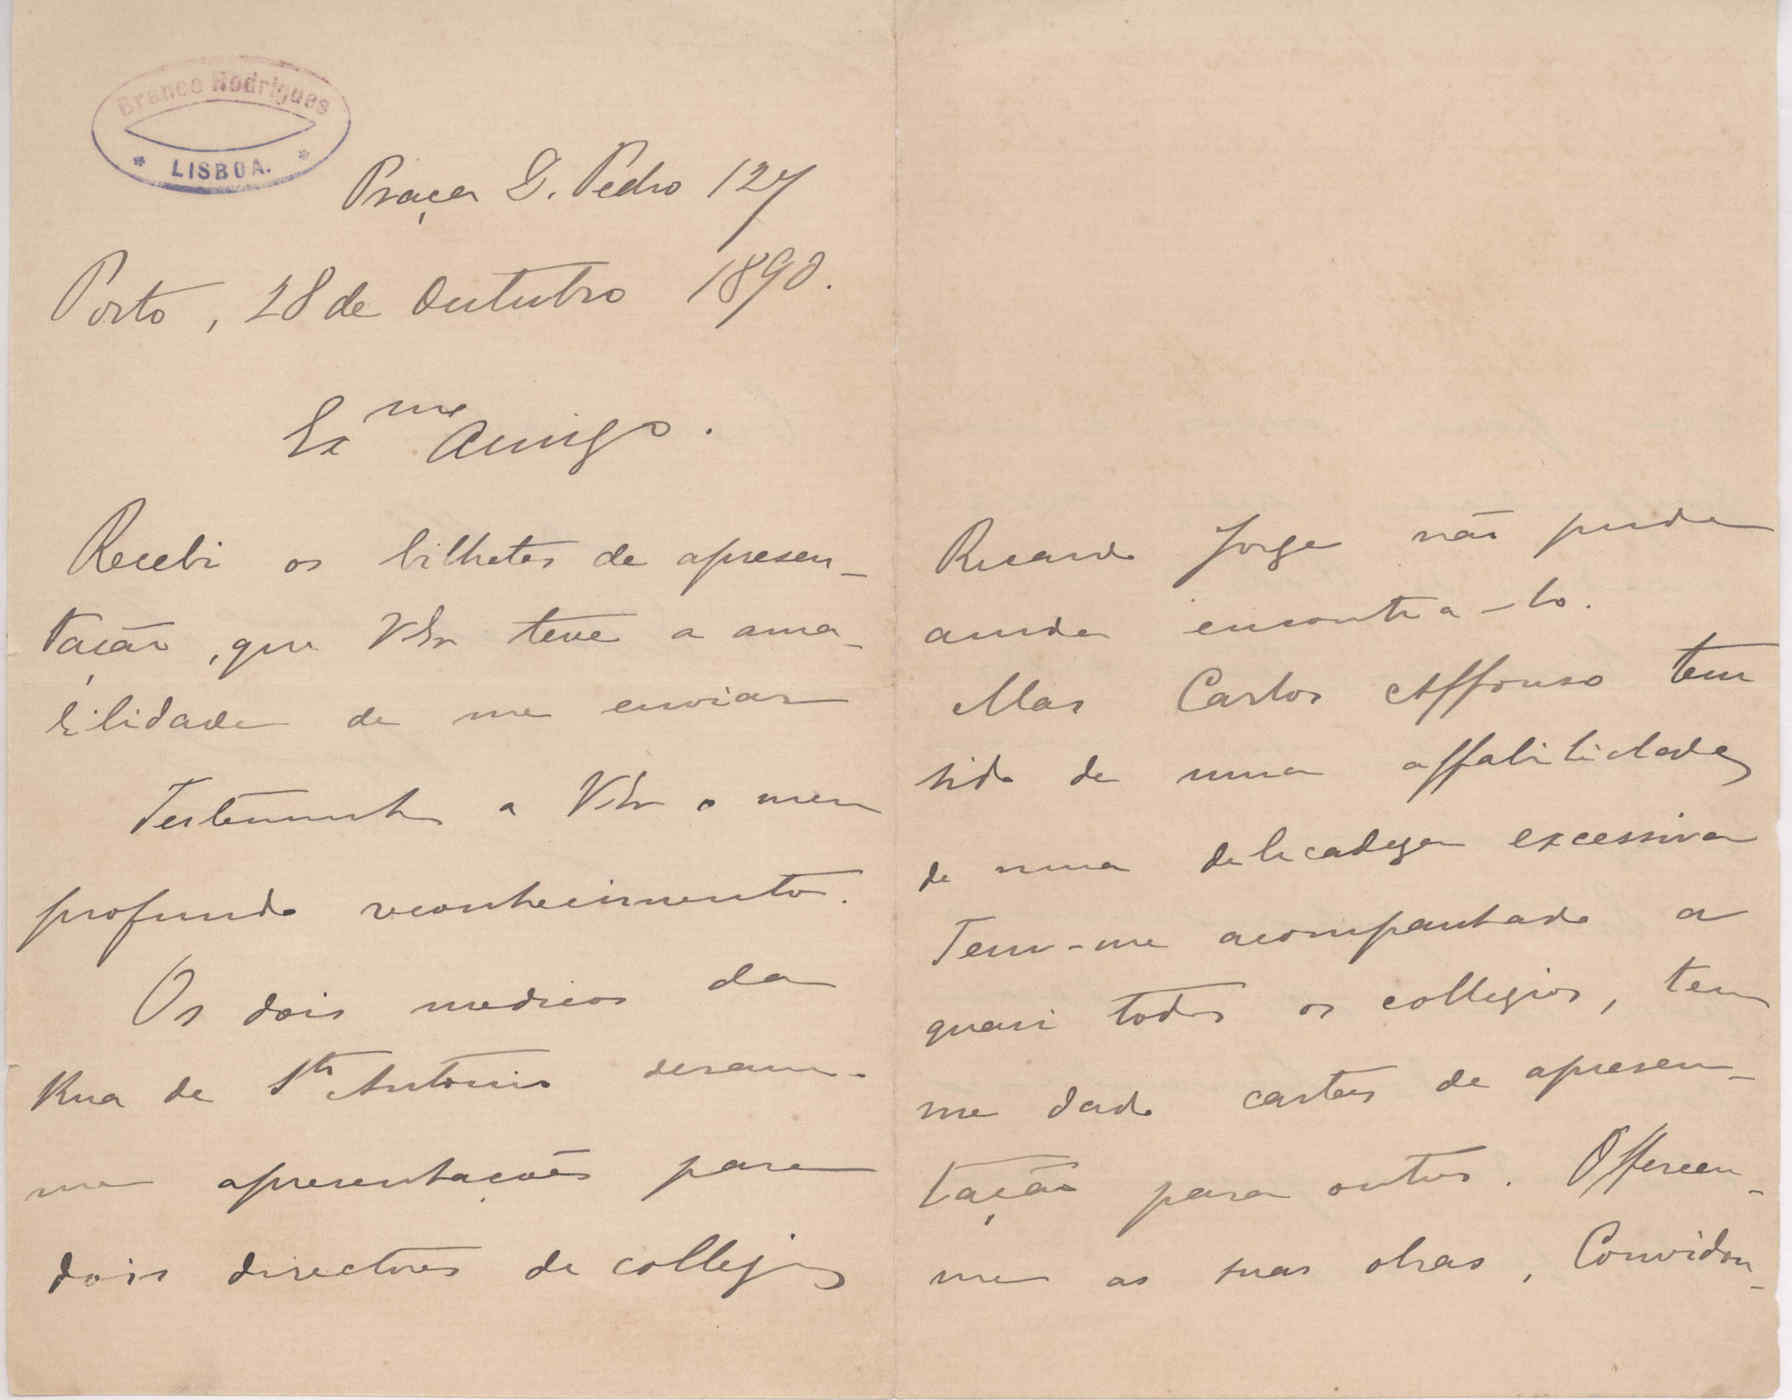 Branco Rodrigues
* LISBOA. *
Praça D. Pedro 127
Porto, 28 de Outubro 1890.
Ex.me Amigo.
Recebi os bilhetes de apresen-
tação, que VEx teve a ama-
bilidade de me enviar
Testemunho a VEx o meu
profundo reconhecimento.
Os dois medicos da
Rua de Sto Antonio deram-
me apresentações para
dois directores de collegios
Ricardo Jorge não pude
ainda encontra-lo.
Mas Carlos Affonso tem
sido de uma affabilidade,
de uma delicadeza excessiva
Tem-me acompanhado a
quasi todos os collegios, tem
me dado cartas de apresen-
tação para outros. Offereceu-
me as suas obras, Convidou-